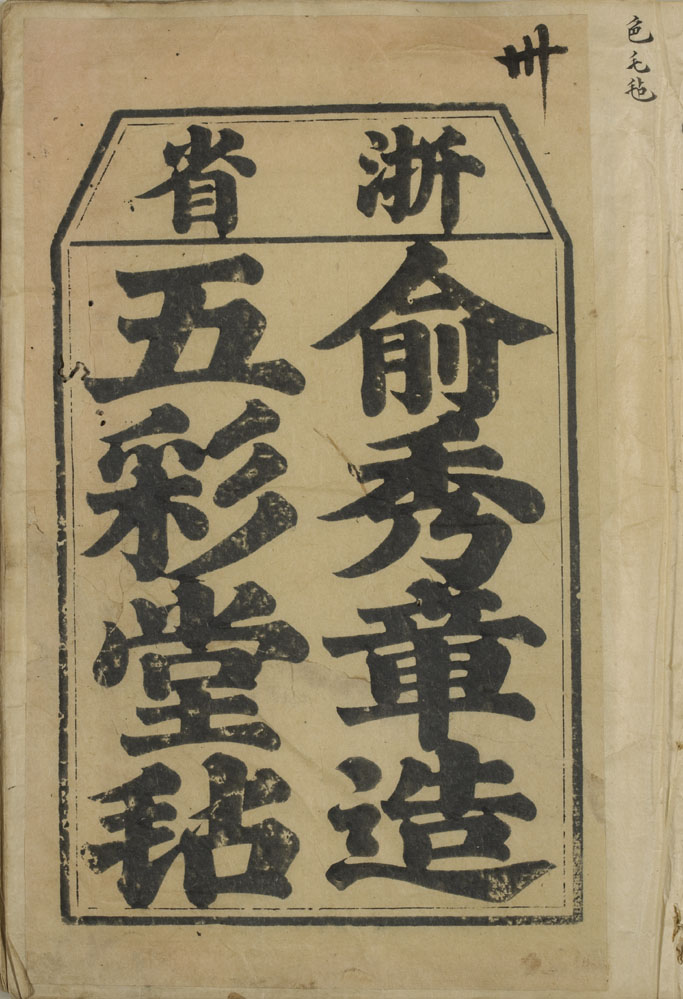 色毛毡
卅
浙省
俞秀章造
五彩堂毡